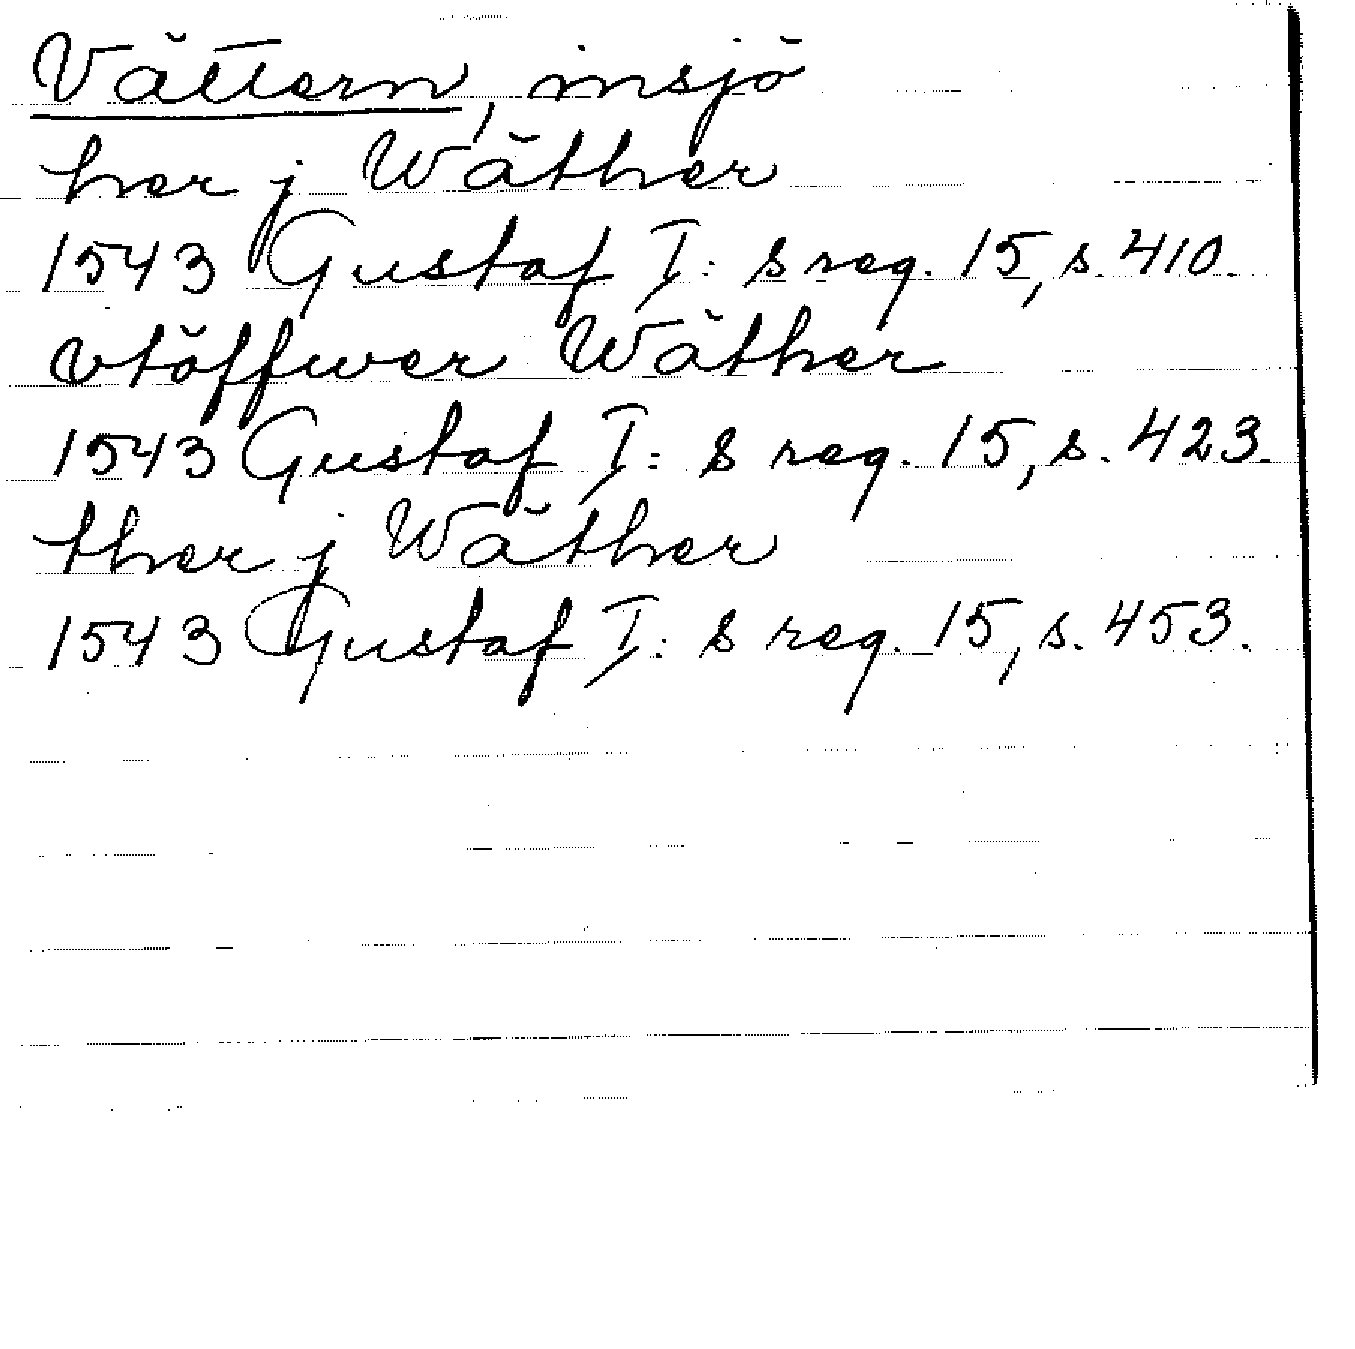 Vättern, insjö
her j Wäther
1543 Gustaf I:s reg. 15, s. 410.
vtöffwer Wäther
1543 Gustaf I:s reg. 15, s. 423.
ther j Wäther
1543 Gustaf I:s reg. 15, s. 453.